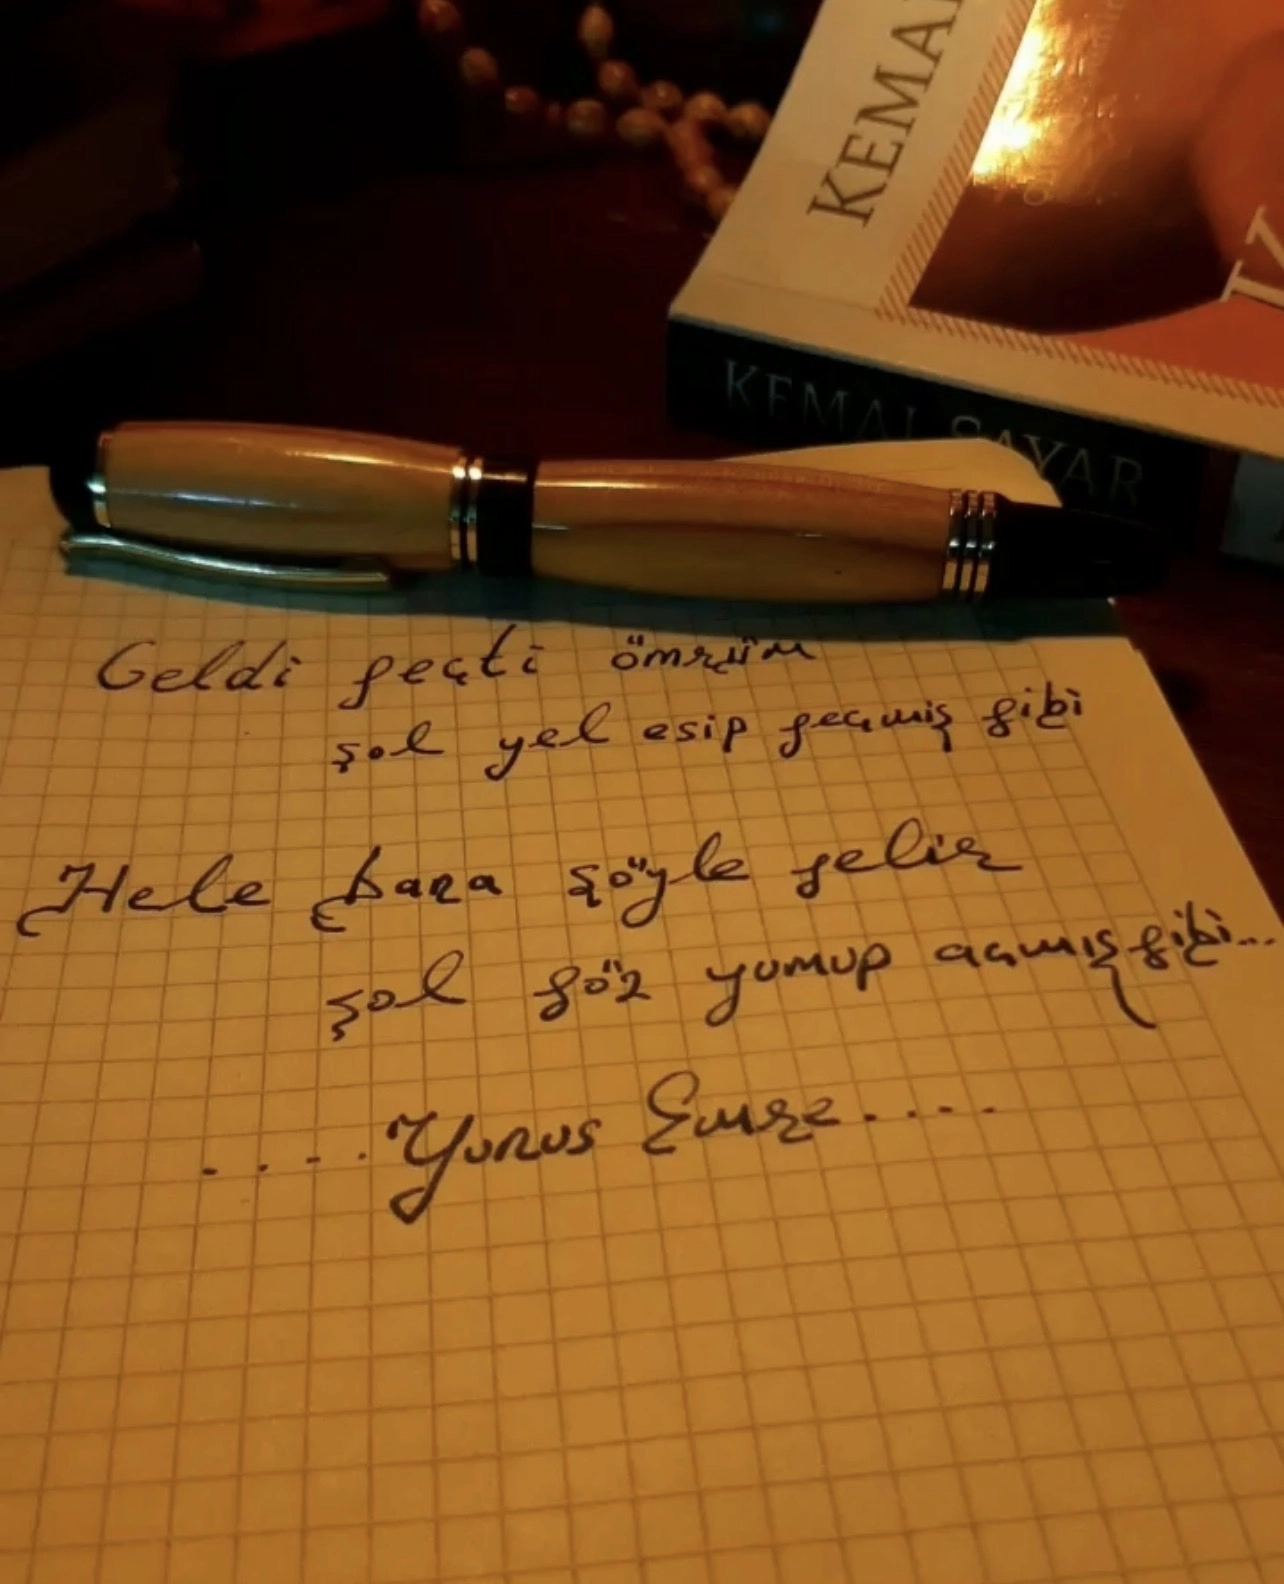 KEMAL
KEMAL SAYAR
Geldi geçti ömrüm
şol yel esip geçmiş gibi
Hele bana şöyle gelir
şol göz yumup açmış gibi...
....Yunus Emre....